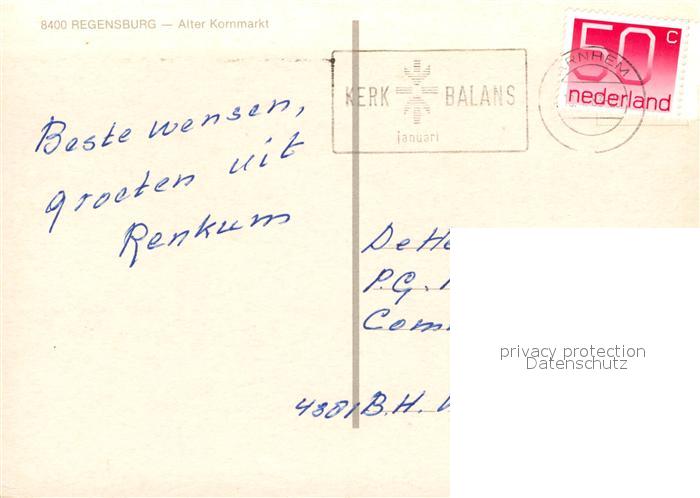 8400 REGENSBURG — Alter Kornmarkt
KERK BALANS
januari
ARNHEM
50 C
nederland
Beste wensen,
groeten uit
Renkum
De He
P.G.
Com
4381 B.H.
privacy protection
Datenschutz